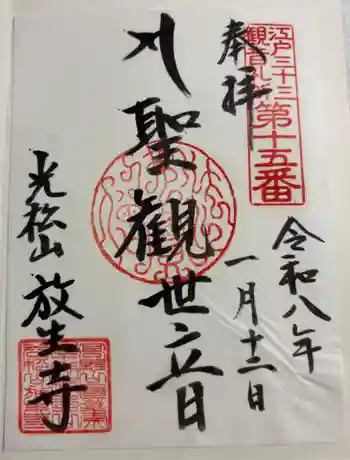 江戸三十三
観音札所
第十五番
奉拝
令和八年
一月十二日
聖観世音
光松山
放生寺